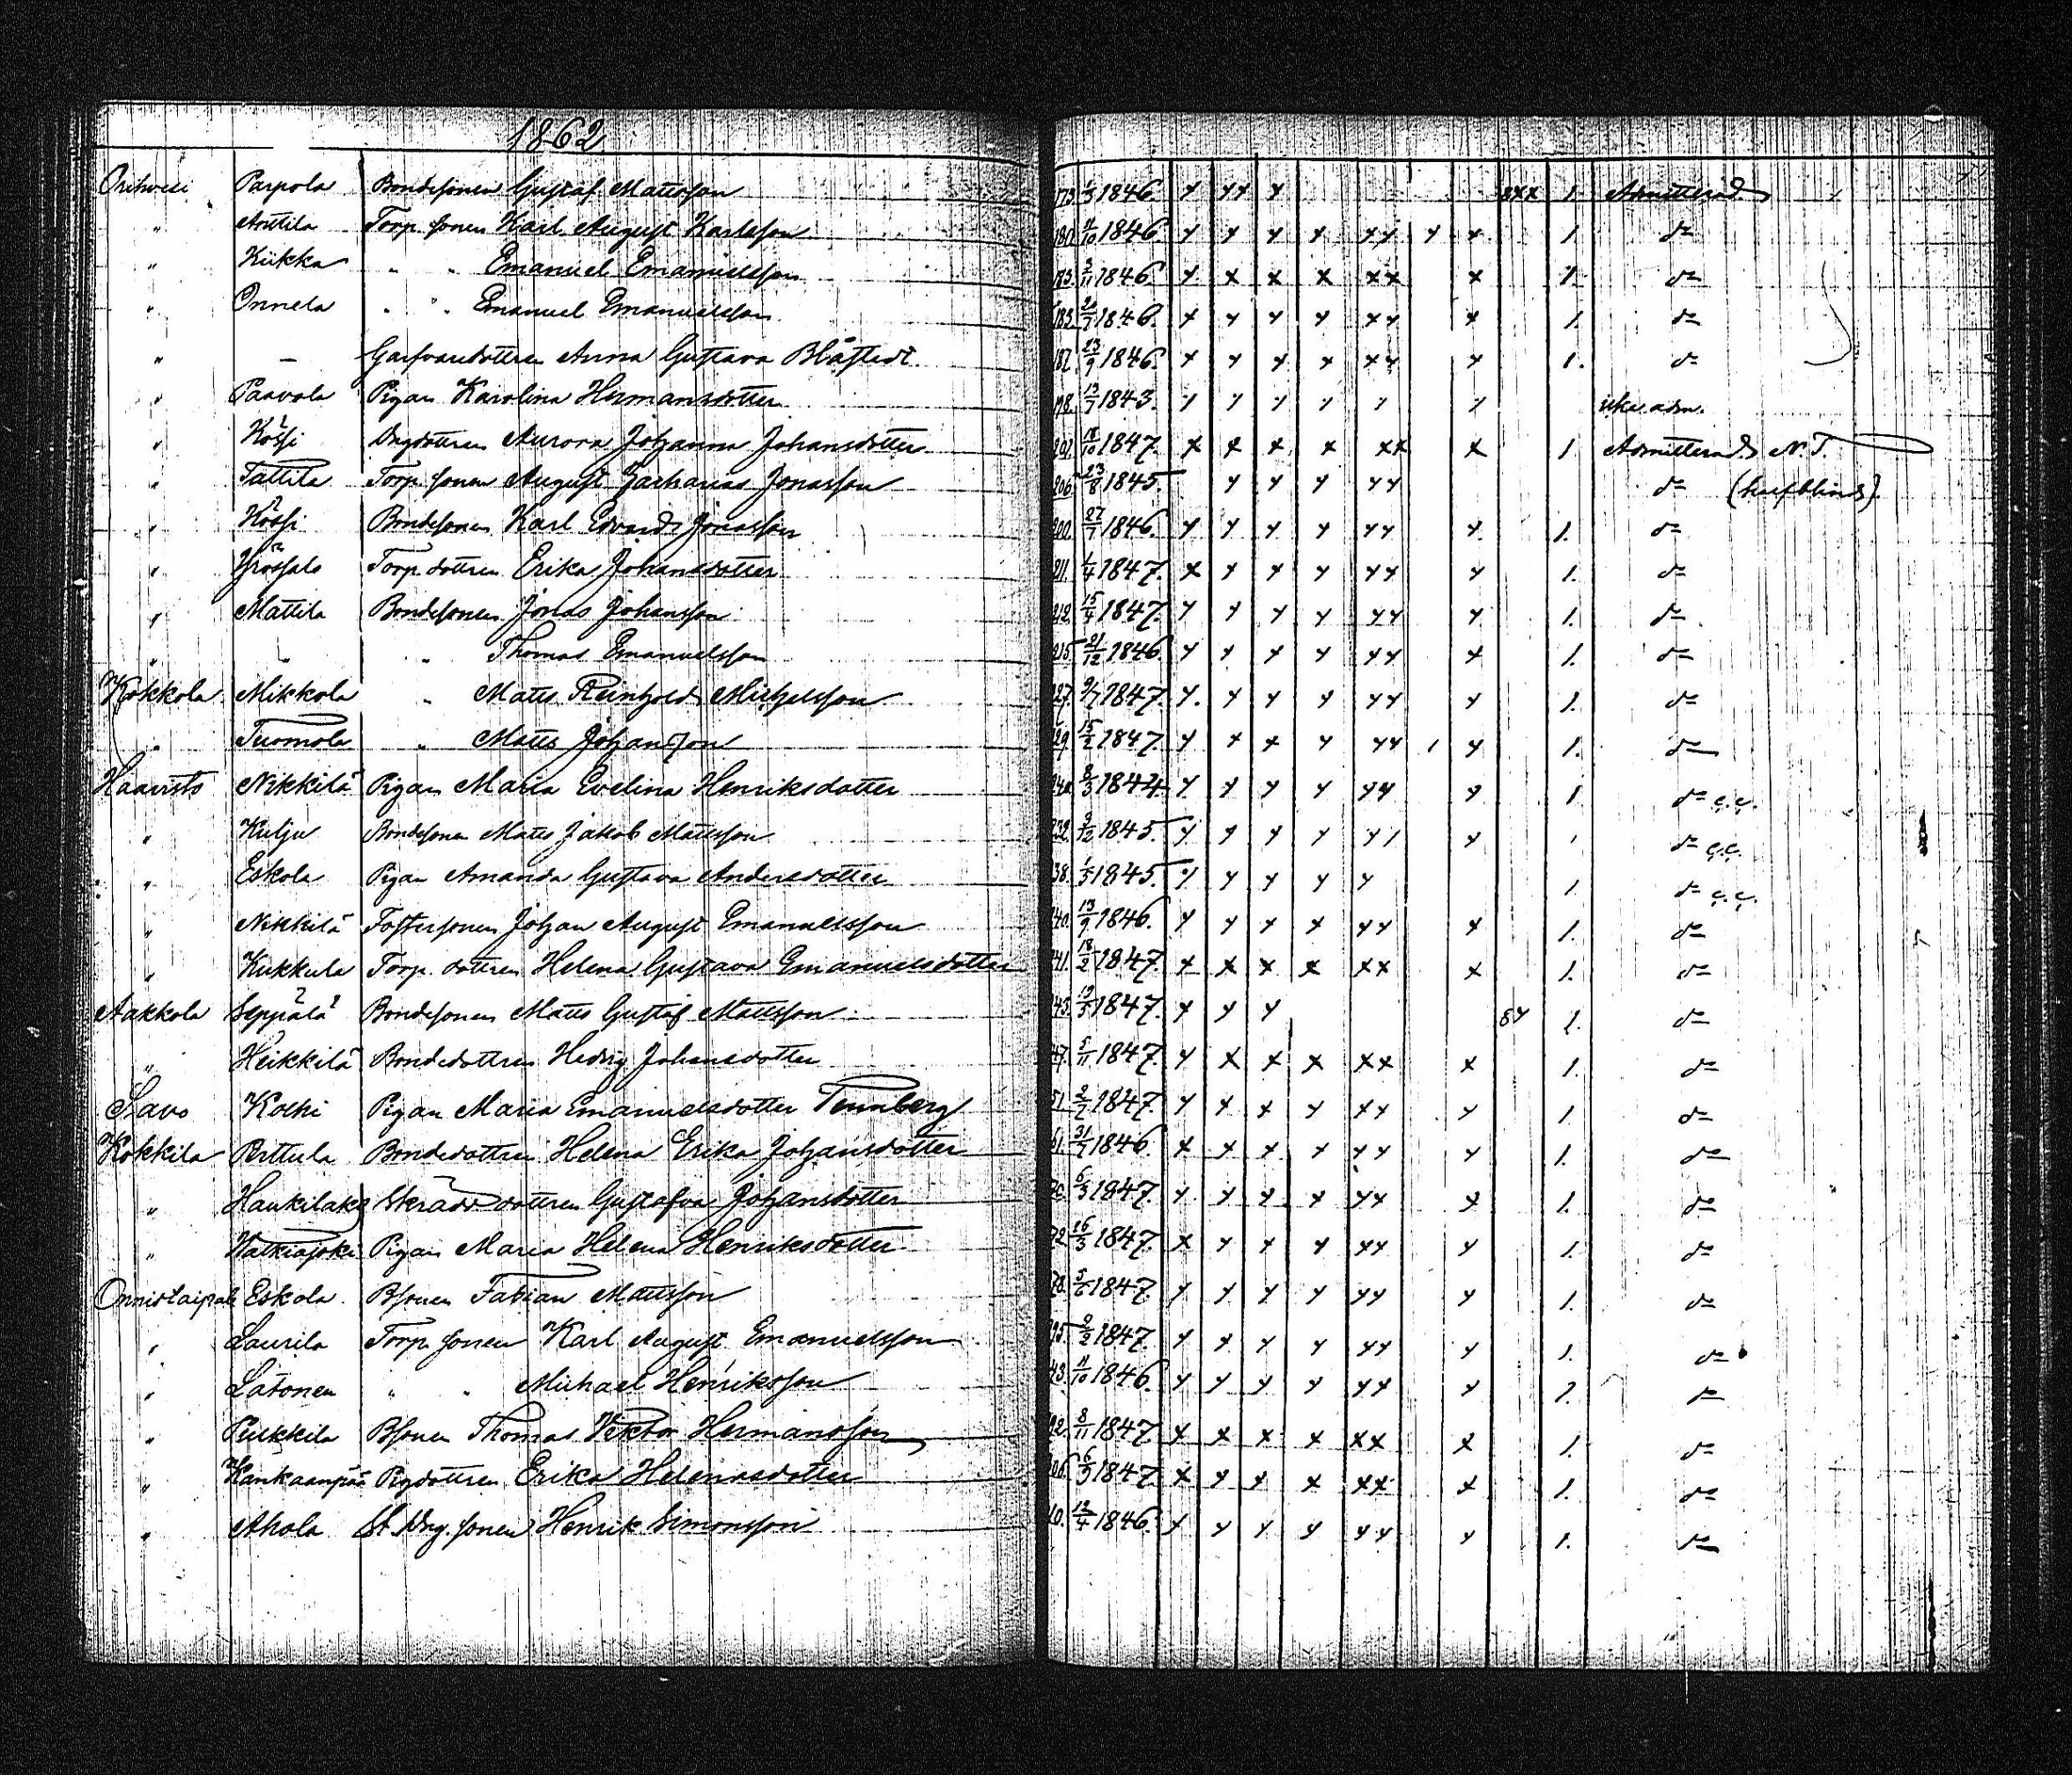 1862
Orihvesi Parpola Bondesonen Gustaf Mattsson 173. 1846. x xx x xxx 1. Admitterad
" Anttila Torp. sonen Karl August Karlsson 180. 1846. x x x x xx x x 1. do
" Kiikka " " Emanuel Emanuelsson 3/11 1846. x x x x xx x 1. do
" Onnela " " Emanuel Emanuelsson 183. 1846. x x x x xx x 1. do
" – Garfvaredottren Anna Gustava Blåstedt 187. 23/9 1846. x x x x xx x 1. do
" Paavola Pigan Karolina Hermansdotter 198. 13/7 1843. / / / / / / icke adm.
" Kössi Drgdottren Aurora Johanna Johansdotter 202. 18/10 1847. x x x x xx x 1 Admitterad N. T.
" Tattila Torp. sonen August Zacharias Jonasson 206. 23/8 1845. x x x xx do (halfblind).
" Kössi Bondesonen Karl Edvard Jonasson 200. 27/7 1846. x x x x xx x 1. do
" Yrössälä Torp. dottren Erika Johansdotter 211. 1/4 1847. x x x x xx x 1. do
" Mattila Bondesonen Jonas Johansson 212. 15/4 1847. x x x x xx x 1. do
" " " Thomas Emanuelsson 215. 21/12 1846. x x x x xx x 1. do
Kokkola Mikkola " Matts Reinhold Michelsson 227. 9/7 1847. x x x x xx x 1. do
" Tuomola " Matts Johansson 229. 15/2 1847. x x x x xx / x 1. do
Haavisto Nikkilä Pigan Maria Evelina Henriksdotter 240. 8/3 1844. x x x x xx x 1 do c.c.
" Kulju Bondesonen Matts Jakob Mattsson 232. 3/12 1845. x x x x x/ x ' do c.c.
" Eskola Pigan Amanda Gustava Andersdotter 238. 1/5 1845. x x x x x 1. do c.c.
" Nikkilä Fostersonen Johan August Emanuelsson 240. 13/9 1846. x x x x xx x 1. do
" Kukkula Torp. dottren Helena Gustava Emanuelsdotter 241. 18/2 1847. x x x x xx x 1. do
Aakkola Seppälä Bondesonen Matts Gustaf Mattsson 243. 1847. x x x 8x 1. do
" Heikkilä Bondedottren Hedvig Johansdotter 47. 5/11 1847. x x x x xx x 1. do
Savo Koski Pigan Maria Emanuelsdotter Tennberg 51. 1847. x x x x xx x 1. do
Kokkila Perttula Bondedottren Helena Erika Johansdotter 61. 31/7 1846. x x x x xx x 1. do
" Haukilaks Skrädd. dottren Gustafva Johansdotter 6/3 1847. x x x x xx x 1. do
" Watkiajoki Pigan Maria Helena Henriksdotter 72. 16/3 1847. x x x x xx x 1. do
Onnistaipale Eskola Bsonen Fabian Mattsson 78. 1847. x x x x xx x 1. do
" Laurila Torp. sonen Karl August Emanuelsson 95. 1847. x x x x xx x 1. do
" Latonen " " Michael Henriksson 43. 11/10 1846. x x x x xx x 1. do
" Pukkila Bsonen Thomas Viktor Hermansson 92. 8/11 1847. x x x x xx x 1. do
" Kankaanpää Pigdottren Erika Helenasdotter 6/3 1847. x x x x xx x 1. do
" Ahola St. Drg. sonen Henrik Simonsson 10. 12/4 1846. x x x x xx x 1. do